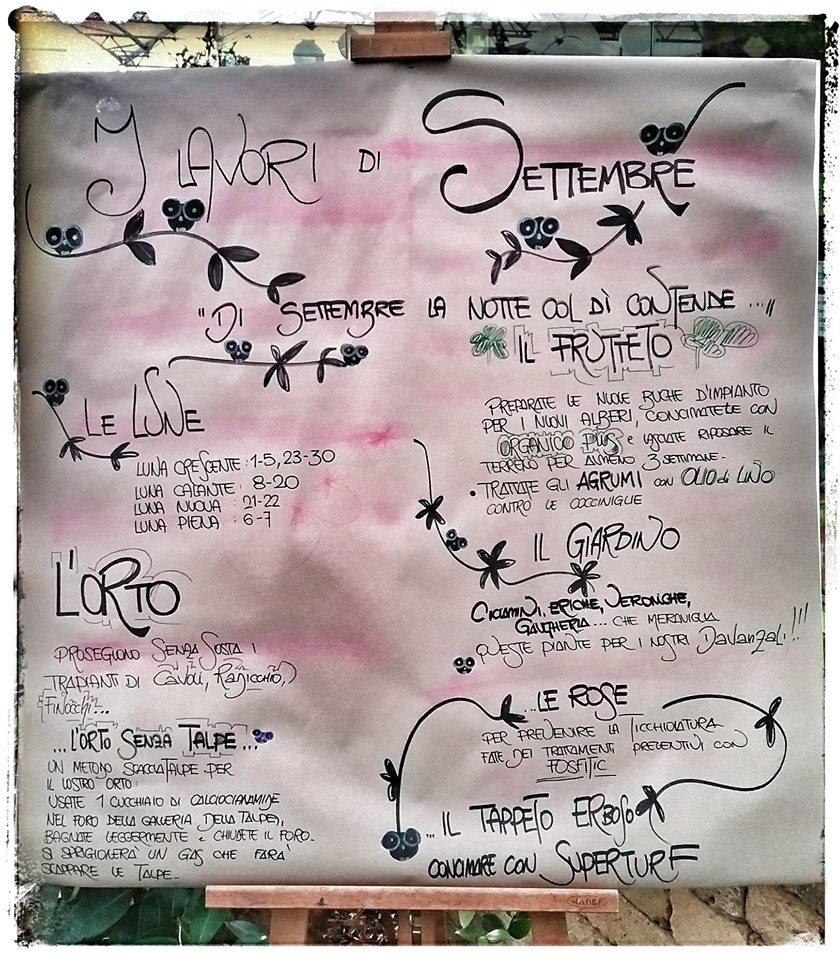 I LAVORI DI SETTEMBRE
"DI SETTEMBRE LA NOTTE COL DÌ CONTENDE ..."
LE LUNE
LUNA CRESCENTE : 1-5, 23-30
LUNA CALANTE : 8-20
LUNA NUOVA : 21-22
LUNA PIENA : 6-7
L'ORTO
PROSEGUONO SENZA SOSTA I
TRAPIANTI DI CAVOLI, RADICCHIO,
FINOCCHI...
...L'ORTO SENZA TALPE...
UN METODO SCACCIATALPE PER
IL VOSTRO ORTO:
USATE 1 CUCCHIAIO DI CALCIOCIANAMIDE
NEL FORO DELLA GALLERIA (DELLA TALPA),
BAGNATE LEGGERMENTE E CHIUDETE IL FORO.
SI SPRIGIONERÀ UN GAS CHE FARÀ
SCAPPARE LE TALPE.
IL FRUTTETO
PREPARATE LE NUOVE BUCHE D'IMPIANTO
PER I NUOVI ALBERI, CONCIMATELE CON
ORGANICO PLUS E LASCIATE RIPOSARE IL
TERRENO PER ALMENO 3 SETTIMANE.
• TRATTATE GLI AGRUMI CON OLIO di LINO
CONTRO LE COCCINIGLIE
IL GIARDINO
CICLAMINI, ERICHE, VERONICHE,
GAULTHERIA... CHE MERAVIGLIA
QUESTE PIANTE PER I NOSTRI DAVANZALI!!!
...LE ROSE
PER PREVENIRE LA TICCHIOLATURA
FATE DEI TRATTAMENTI PREVENTIVI CON
FOSFITIC
...IL TAPPETO ERBOSO
CONCIMARE CON SUPERTURF
MABEF